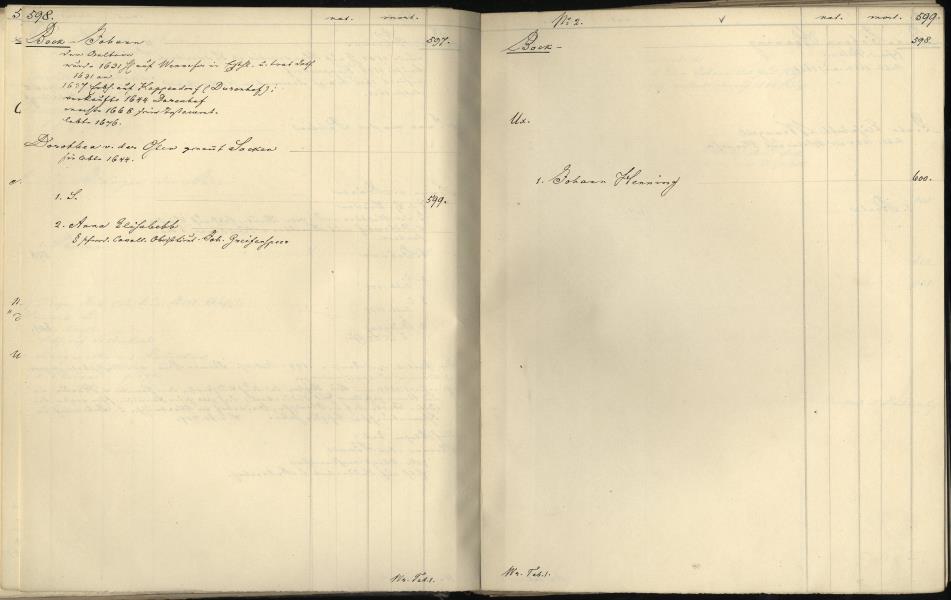 598. nat. mort.
Bock - Johann 597.
der Aeltere
wurde 1631 auf Wennefer in Ehstl. u. trat dass
1631 an
1637 Erbh. auf Kappendorf (Durenhof);
verkaufte 1644 Durenhof
machte 1668 sein Testament.
lebte 1676.
Dorothea v. der Osten genannt Sacken
sie lebte 1644.
1. S. 599.
2. Anna Elisabeth
§ schwed. Cavall. Obristlieut. Joh. Greifenspeer
Wr. Tab. 1.
No 2. nat. mort. 599.
Bock - 598.
Ux.
1. Johann Henning 600.
Wr. Tab. 1.